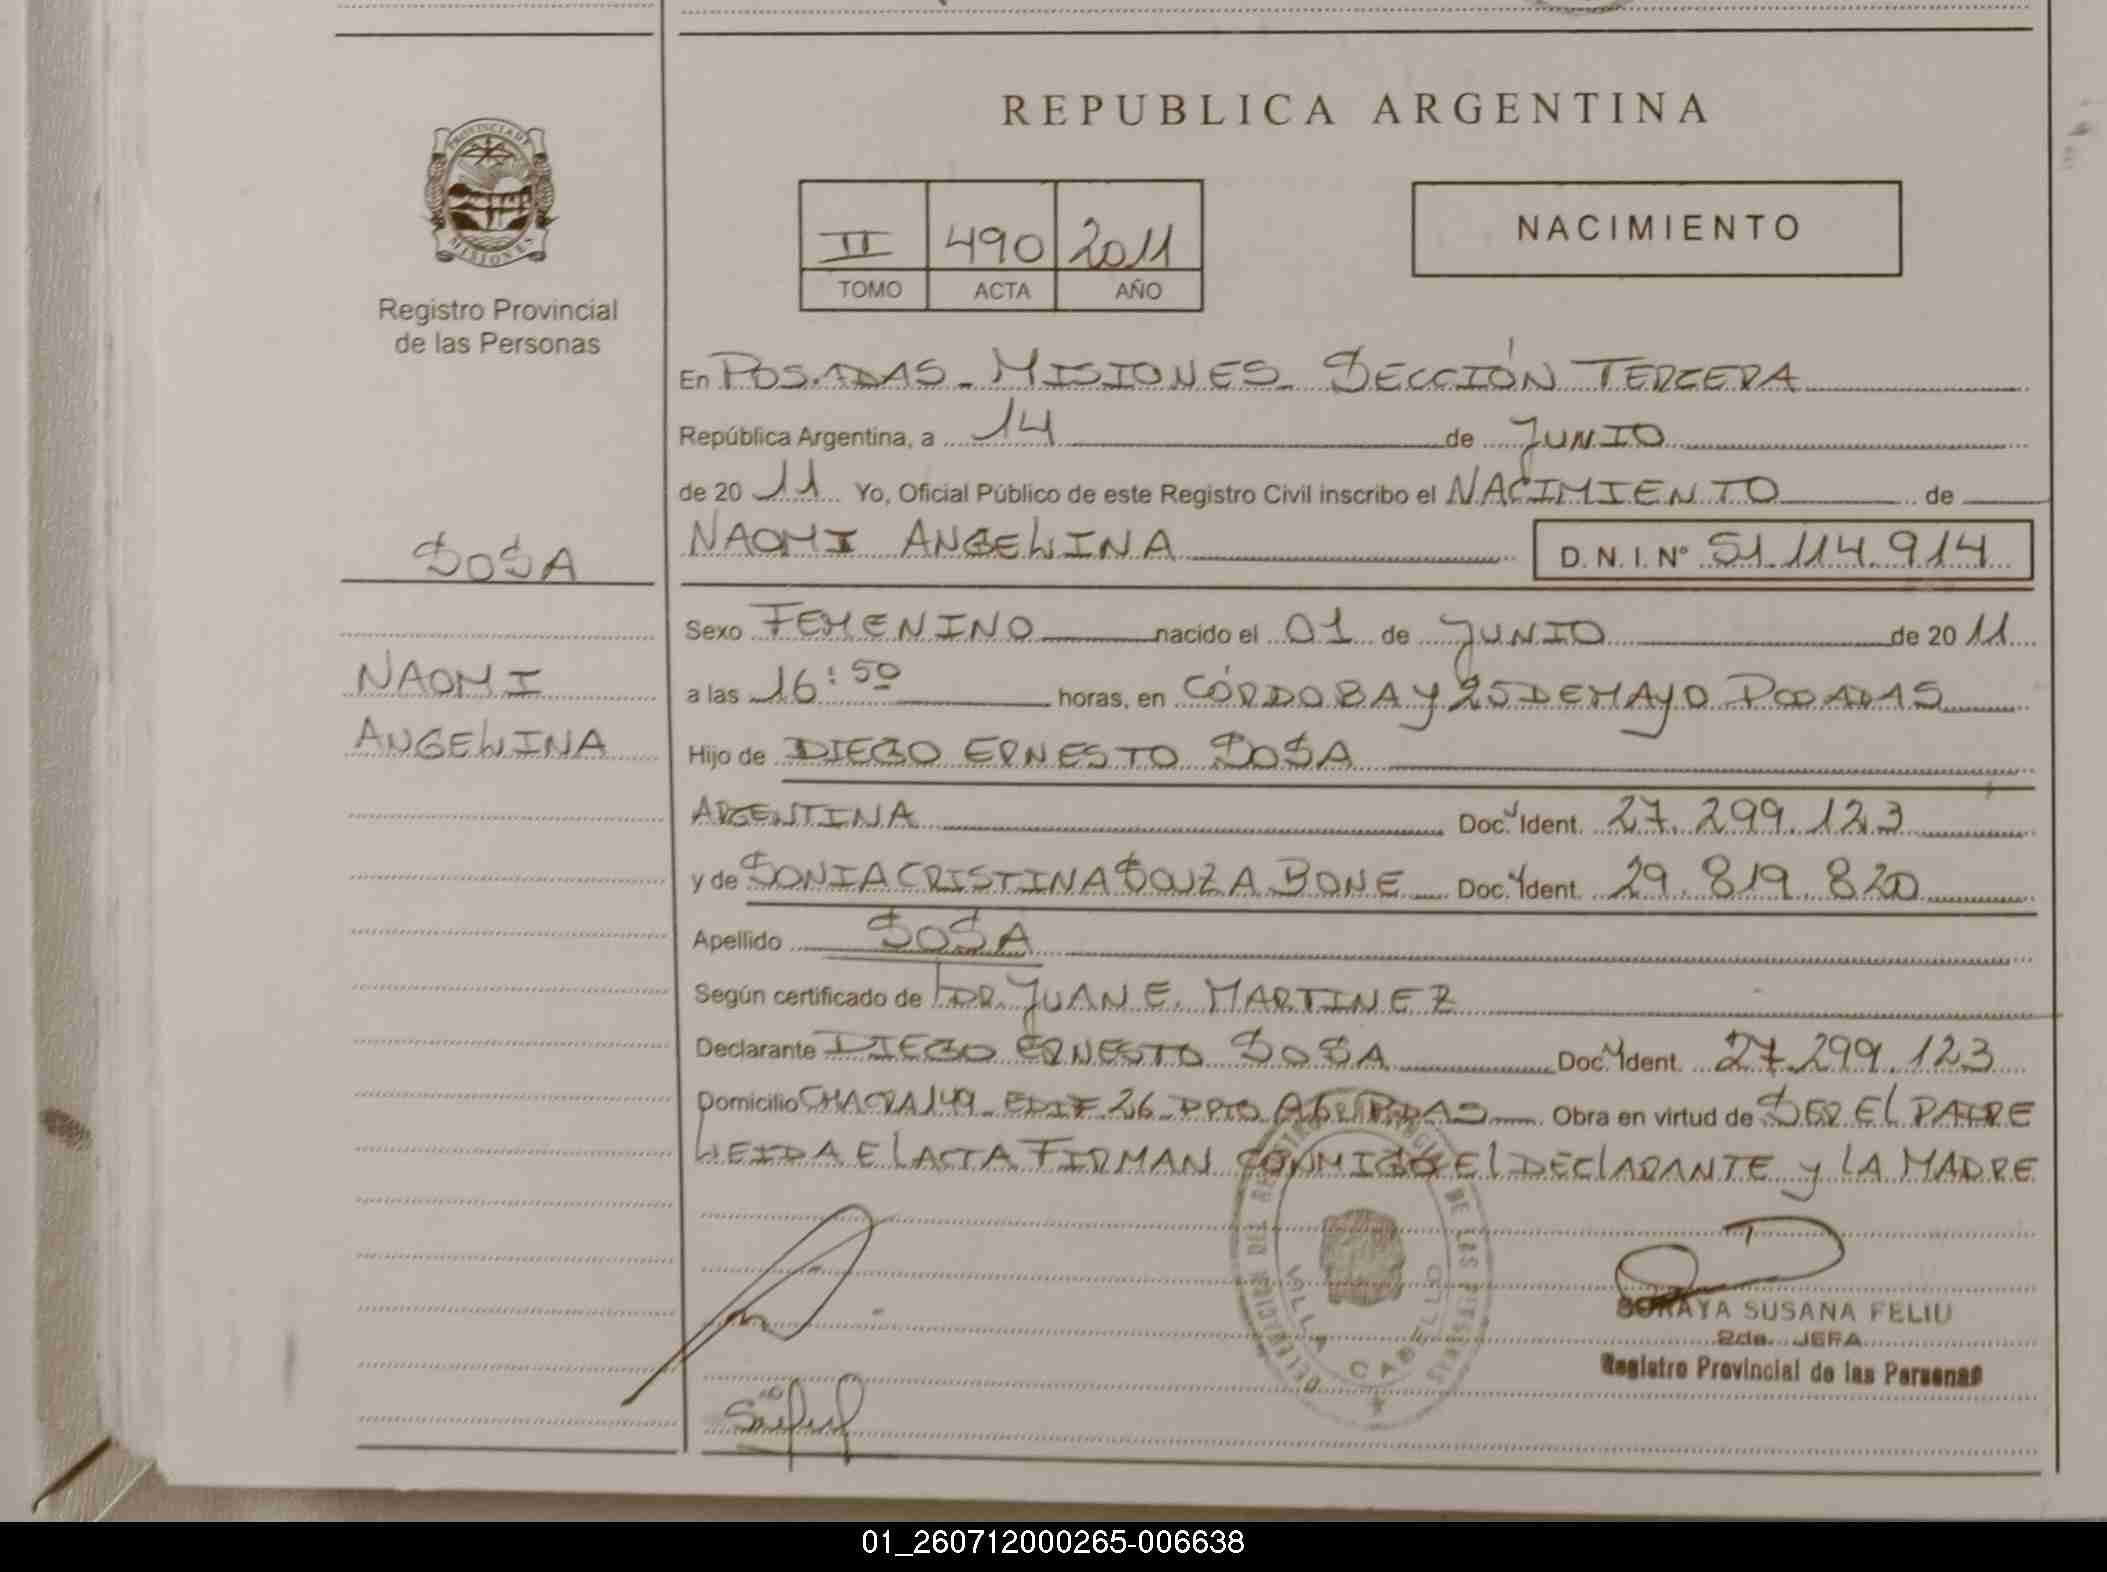 REPUBLICA ARGENTINA
PROVINCIA DE MISIONES
Registro Provincial
de las Personas
II 490 2011
TOMO ACTA AÑO
NACIMIENTO
En POSADAS - MISIONES - SECCIÓN TERCERA
República Argentina, a 14 de JUNIO
de 20 11 Yo, Oficial Público de este Registro Civil inscribo el NACIMIENTO de
NAOMI ANGELINA D. N. I. N° 51.114.914
SOSA
NAOMI
ANGELINA
Sexo FEMENINO nacido el 01 de JUNIO de 20 11
a las 16:50 horas, en CÓRDOBA y 25 DE MAYO POSADAS
Hijo de DIEGO ERNESTO SOSA
ARGENTINA Doc. Ident. 27.299.123
y de SONIA CRISTINA SOUZA BONE Doc. Ident. 29.819.820
Apellido SOSA
Según certificado de DR. JUAN E. MARTINEZ
Declarante DIEGO ERNESTO SOSA Doc. Ident. 27.299.123
Domicilio CHACRA 149 - EDIF 26 - DPTO A6 - PDAS Obra en virtud de SER EL PADRE
LEIDA EL ACTA FIRMAN CONMIGO EL DECLARANTE y LA MADRE
DELEGACION DEL REGISTRO PROVINCIAL DE LAS PERSONAS
VILLA CABELLO
SORAYA SUSANA FELIU
2da. JEFA
Registro Provincial de las Personas
01_260712000265-006638